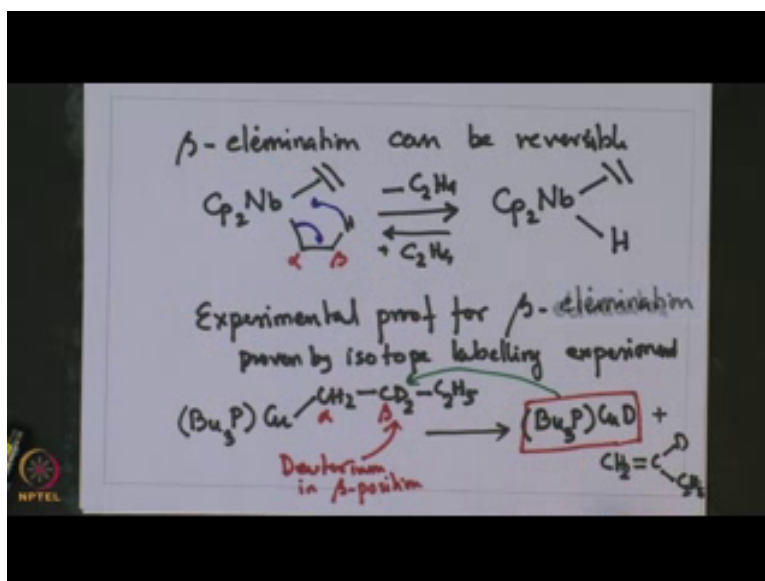 β-elémination can be reversible
Cp₂Nb – C₂H₄ Cp₂Nb
H + C₂H₄ H
α β
Experimental proof for β-elémination
proven by isotope labelling experiment
(Bu₃P) Cu CH₂–CD₂–C₂H₅ (Bu₃P)CuD +
α β
CH₂=C D
C₂H₅
Deuterium
in β-position
NPTEL